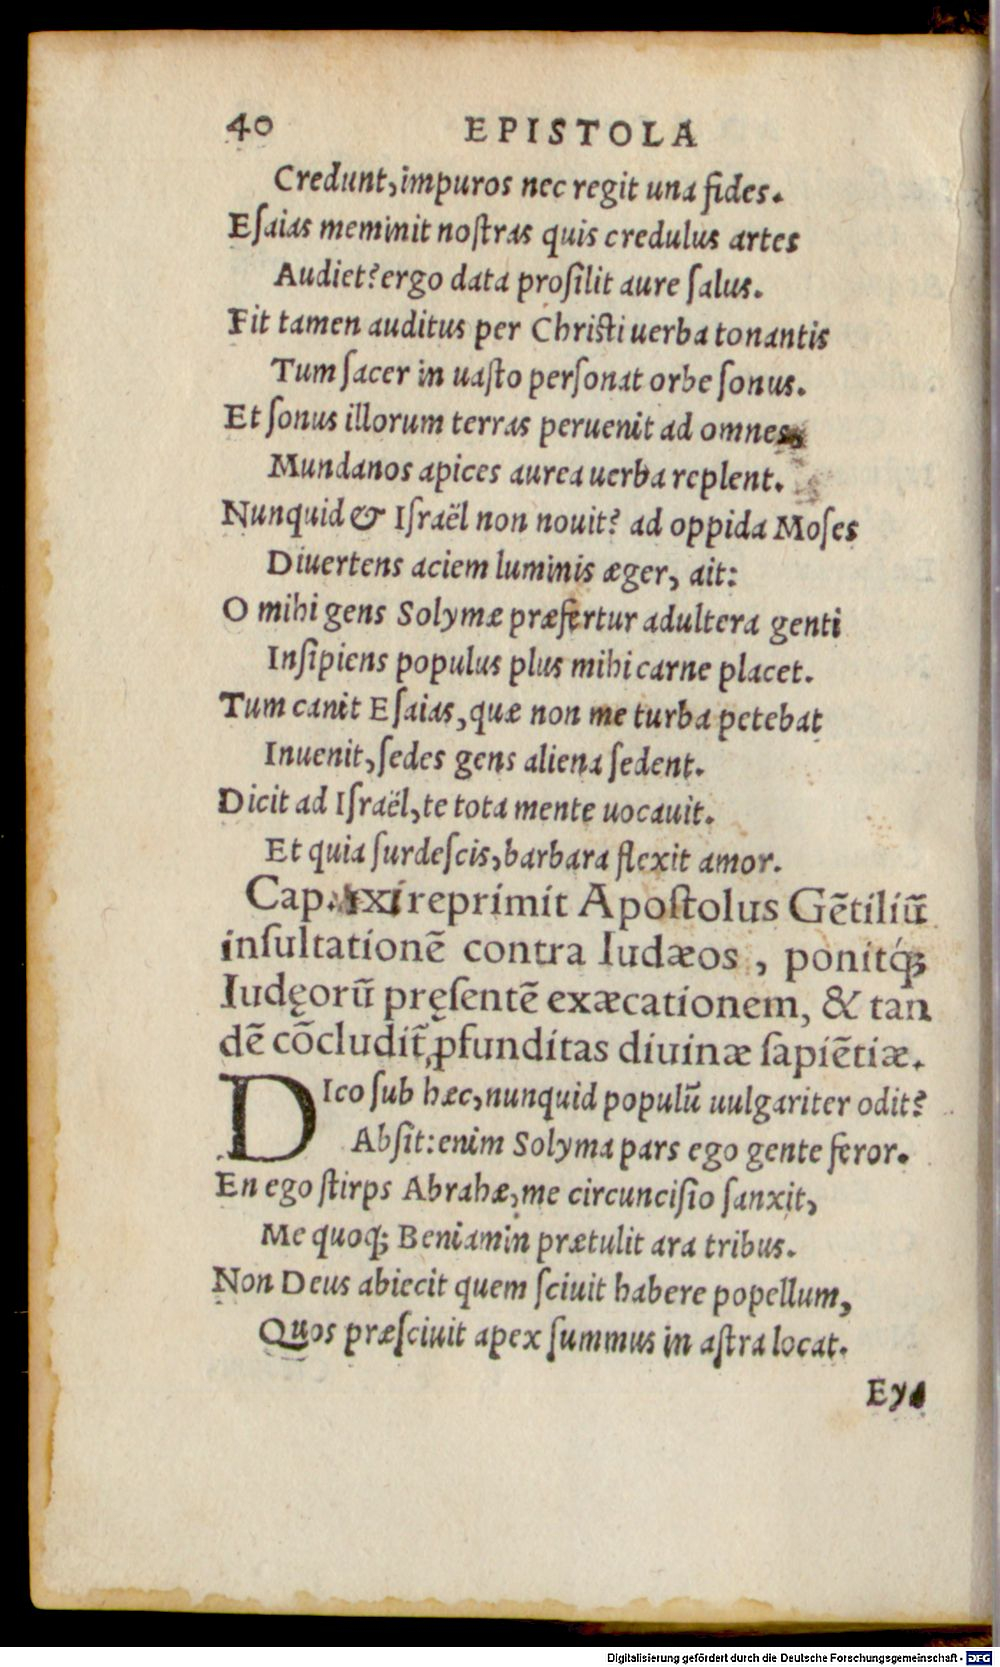 40 EPISTOLA
Credunt, impuros nec regit una fides.
Eſaias meminit noſtras quis credulus artes
Audiet? ergo data proſilit aure ſalus.
Fit tamen auditus per Chriſti uerba tonantis
Tum ſacer in uaſto perſonat orbe ſonus.
Et ſonus illorum terras peruenit ad omnes,
Mundanos apices aurea uerba replent.
Nunquid & Iſraël non nouit? ad oppida Moſes
Diuertens aciem luminis æger, ait:
O mihi gens Solymæ præfertur adultera genti
Inſipiens populus plus mihi carne placet.
Tum canit Eſaias, quæ non me turba petebat
Inuenit, ſedes gens aliena ſedent.
Dicit ad Iſraël, te tota mente uocauit.
Et quia ſurdeſcis, barbara flexit amor.
Cap. reprimit Apoſtolus Gẽtiliũ
inſultationẽ contra Iudæos, ponitq́;
Iudęorũ pręſentẽ exæcationem, & tan
dẽ cõcludit̃, ꝓfunditas diuinæ ſapiẽtiæ.
DIco ſub hæc, nunquid populũ uulgariter odit?
Abſit: enim Solyma pars ego gente feror.
En ego ſtirps Abrahæ, me circunciſio ſanxit,
Me quoq; Beniamin prætulit ara tribus.
Non Deus abiecit quem ſciuit habere popellum,
Quos præſciuit apex ſummus in aſtra locat.
Eya
Digitalisierung gefördert durch die Deutsche Forschungsgemeinschaft - DFG